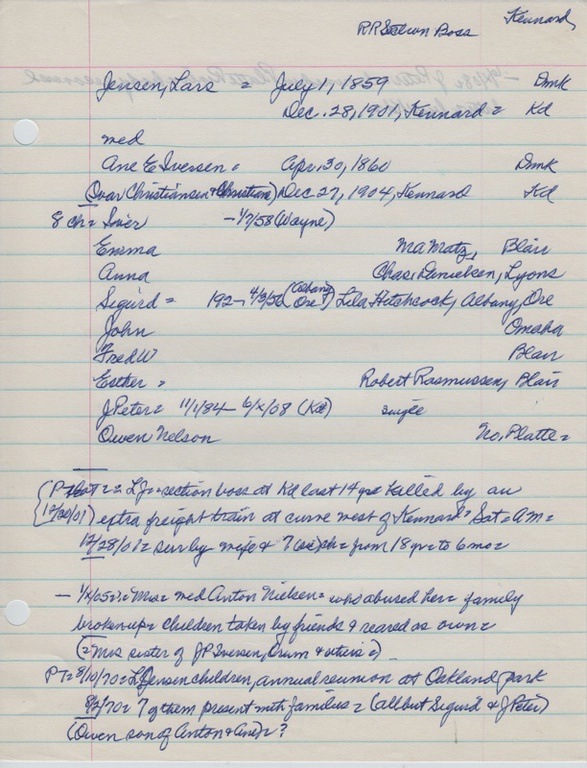 Kennard,
RR Section Boss
Jensen, Lars = July 1, 1859 Dmk
Dec. 28, 1901, Kennard = Kd
med
Ane E Iversen = Apr. 30, 1860 Dmk
(Ovar Christiansen & Christian) Dec 27, 1904, Kennard Kd
8 ch = Iver - 1/7/58 (Wayne)
Emma Ma Matz, Blair
Anna Chas. Danielsen, Lyons
Sigurd = 192- 4/3/56 (Albany Ore) Lila Hitchcock, Albany, Ore
John Omaha
Fred W Blair
Esther = Robert Rasmussen, Blair
J Peter = 11/1/84 - 6/x/08 (Kd) single
Owen Nelson No. Platte =
= LJ = section boss at Kd last 14 yrs killed by an
extra freight train at curve west of Kennard = Sat = A.M =
12/28/01 = sur by wife & 7 ch = from 18 yrs to 6 mo =
- 1/x/05 = Mrs = med Anton Nielsen = who abused her = family
broken up = children taken by friends & reared as own =
(= Mrs sister of J P Iversen, Orum & others =)
PT = 8/10/70 = L Jensen children, annual reunion at Oakland park
8/2/70 = 7 of them present with families = (all but Sigurd & J Peter)
(Owen son of Anton & Ane) = ?